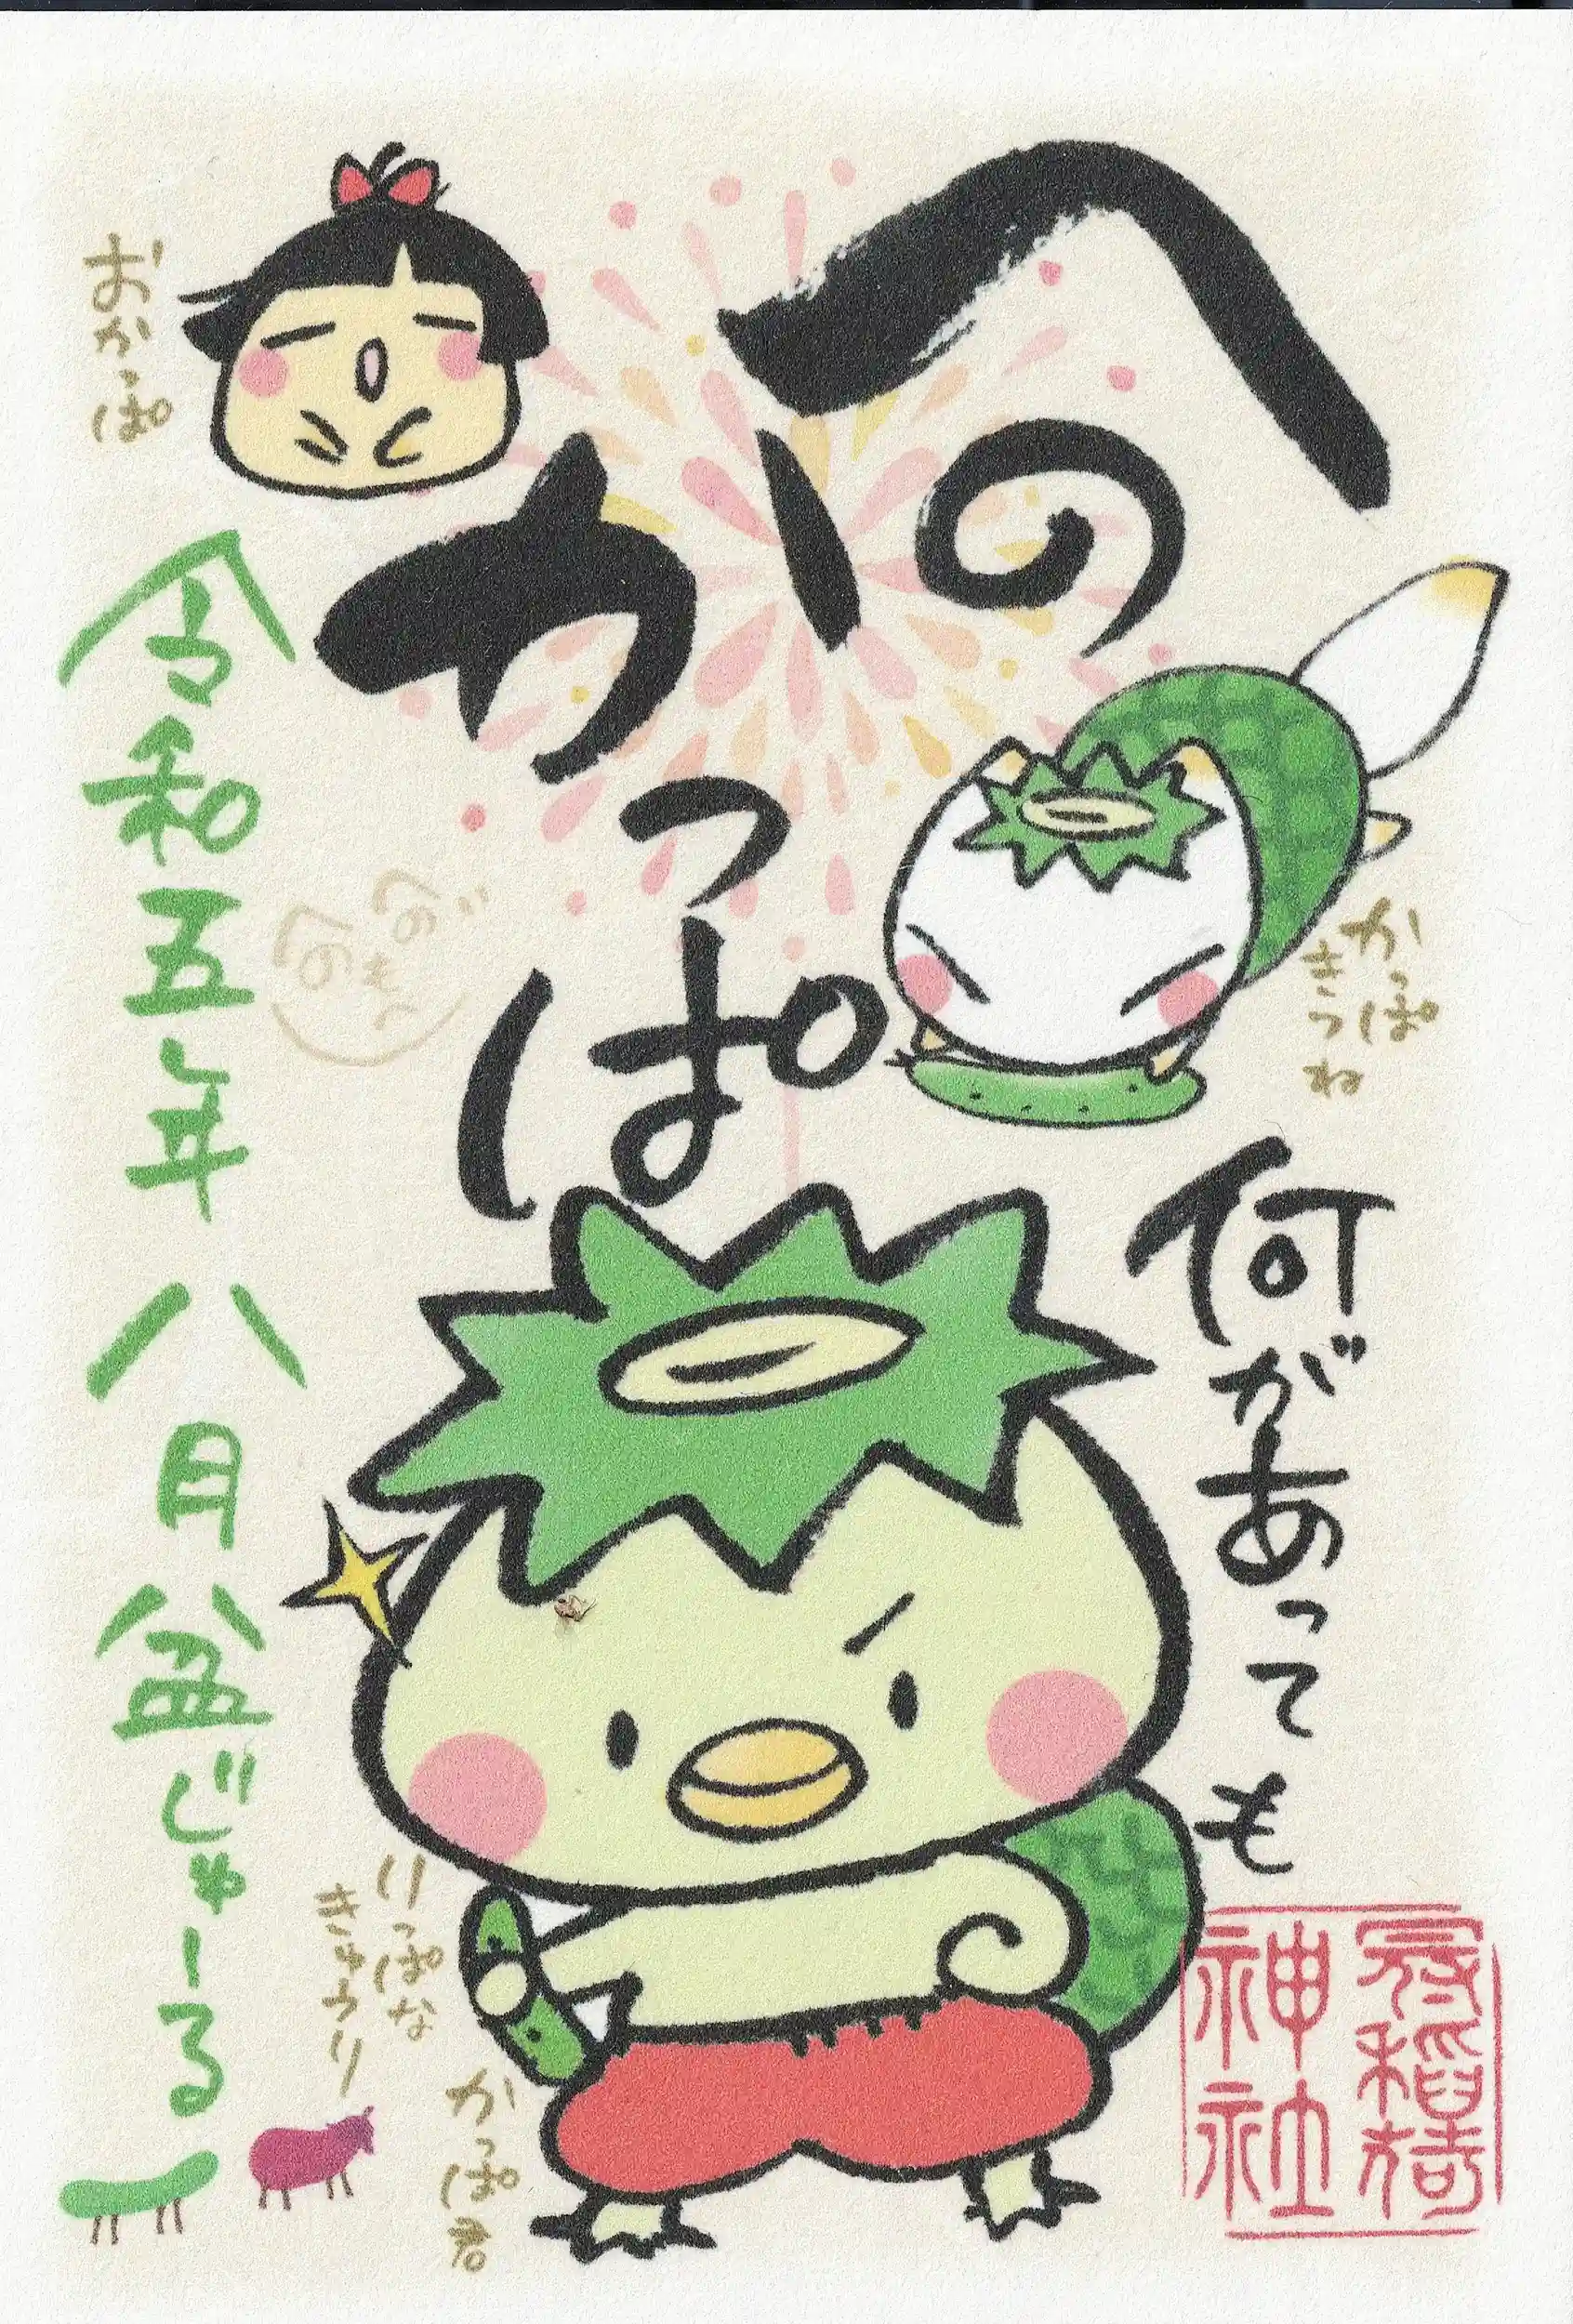 へのかっぱ
何があっても
かっぱ
きつね
おかっぱ
令和五年 八月 盆じゅーる
りっぱな
きゅうり
かっぱ君
稲荷
神社